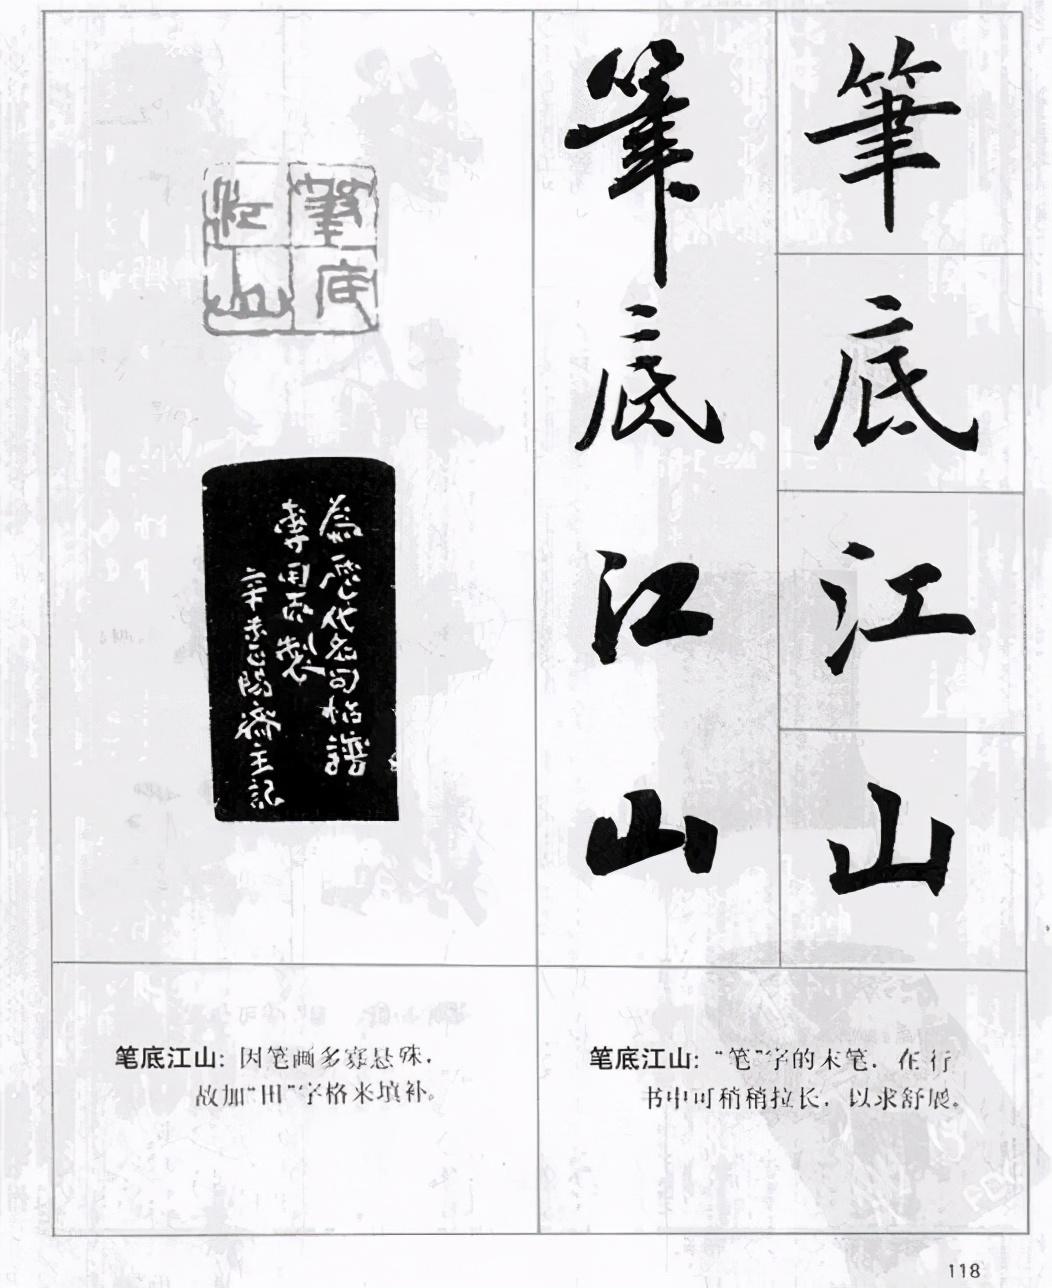 筆底江山
筆底江山
筆底
江山
為歷代名句帖譜
專用而製
辛未 齋主記
笔底江山：因笔画多寡悬殊，
故加“田”字格来填补。
笔底江山：“笔”字的末笔，在行
书中可稍稍拉长，以求舒展。
118